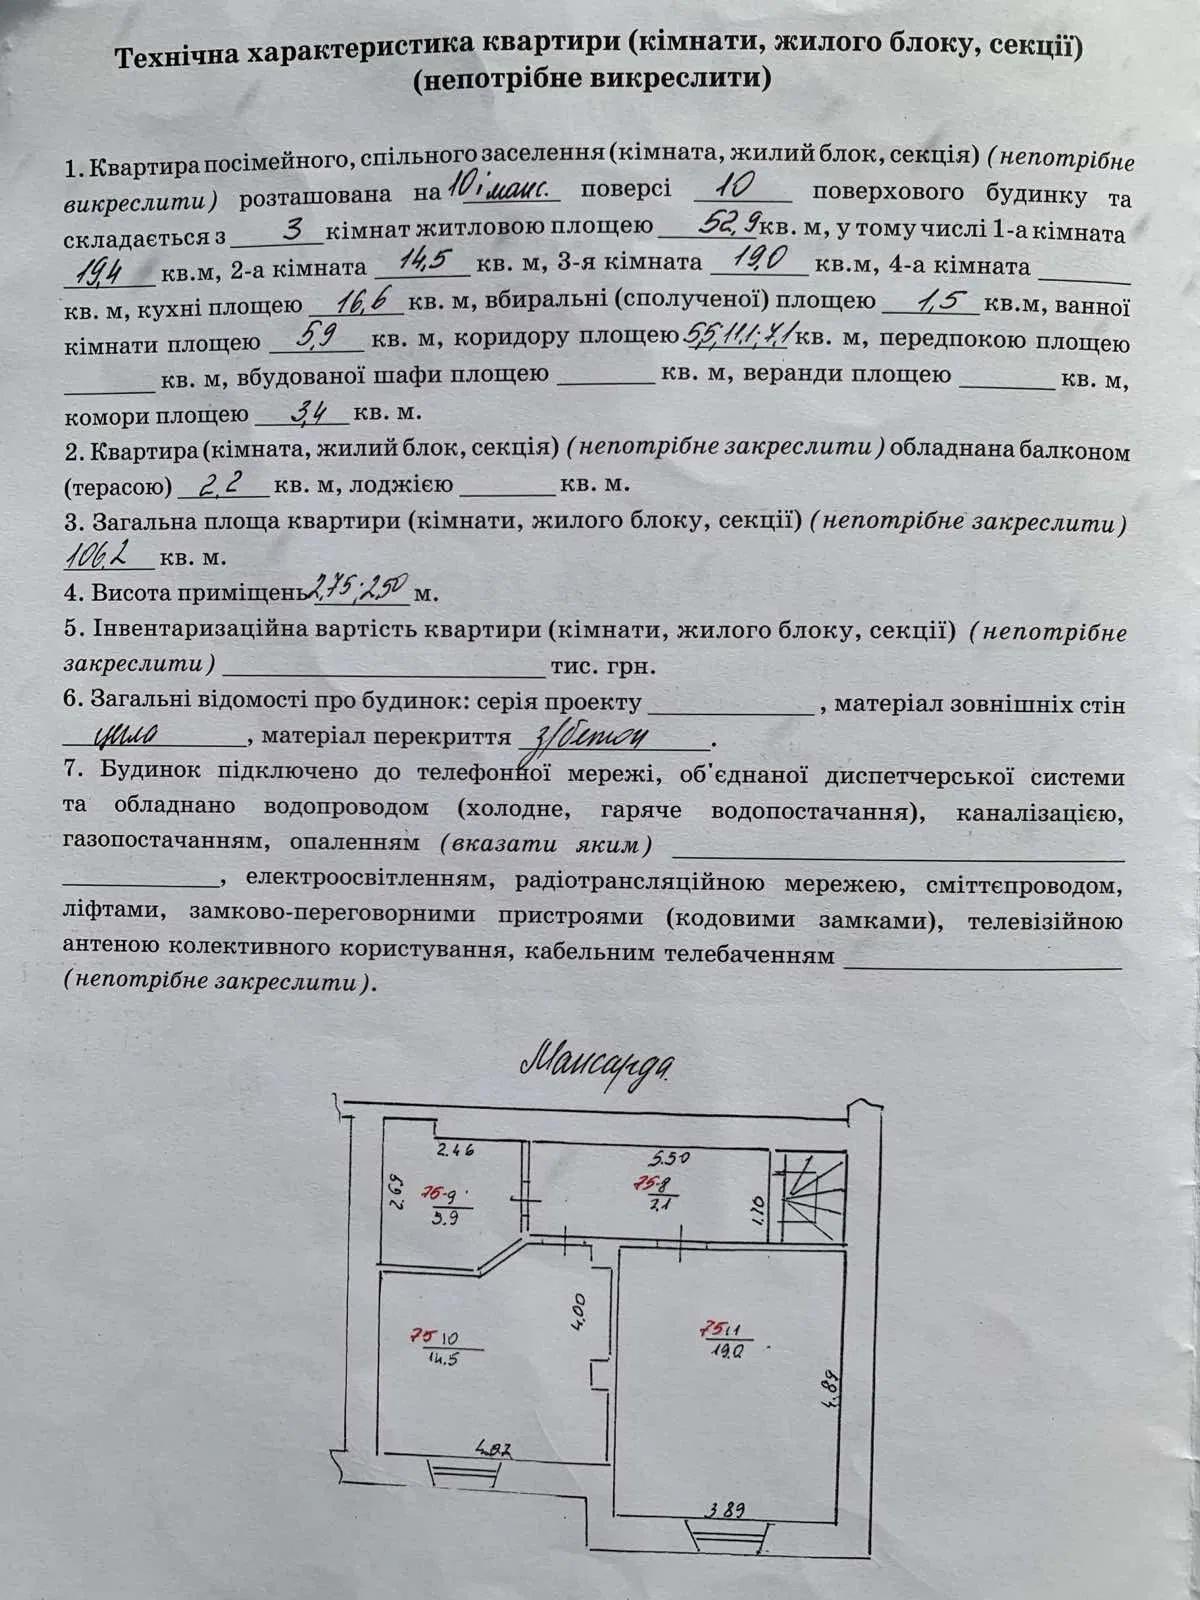 Технічна характеристика квартири (кімнати, жилого блоку, секції)
(непотрібне викреслити)
1. Квартира посімейного, спільного заселення (кімната, жилий блок, секція) (непотрібне
викреслити) розташована на 10 і манс. поверсі 10 поверхового будинку та
складається з 3 кімнат житловою площею 52,9 кв. м, у тому числі 1-а кімната
19,4 кв.м, 2-а кімната 14,5 кв. м, 3-я кімната 19,0 кв.м, 4-а кімната
кв. м, кухні площею 16,6 кв. м, вбиральні (сполученої) площею 1,5 кв.м, ванної
кімнати площею 5,9 кв. м, коридору площею 5,5; 11,1; 7,1 кв. м, передпокою площею
кв. м, вбудованої шафи площею кв. м, веранди площею кв. м,
комори площею 3,4 кв. м.
2. Квартира (кімната, жилий блок, секція) (непотрібне закреслити) обладнана балконом
(терасою) 2,2 кв. м, лоджією кв. м.
3. Загальна площа квартири (кімнати, жилого блоку, секції) (непотрібне закреслити)
106,2 кв. м.
4. Висота приміщень 2,75; 2,50 м.
5. Інвентаризаційна вартість квартири (кімнати, жилого блоку, секції) (непотрібне
закреслити) тис. грн.
6. Загальні відомості про будинок: серія проекту , матеріал зовнішніх стін
цегла , матеріал перекриття з/бетон .
7. Будинок підключено до телефонної мережі, об'єднаної диспетчерської системи
та обладнано водопроводом (холодне, гаряче водопостачання), каналізацією,
газопостачанням, опаленням (вказати яким)
, електроосвітленням, радіотрансляційною мережею, сміттєпроводом,
ліфтами, замково-переговорними пристроями (кодовими замками), телевізійною
антеною колективного користування, кабельним телебаченням
(непотрібне закреслити).
Мансарда.
2.46
5.50
2.69
75-9
5.9
75-8
7.1
1.70
4,00
75 10
14.5
75 11
19.0
4.89
4.02
3.89